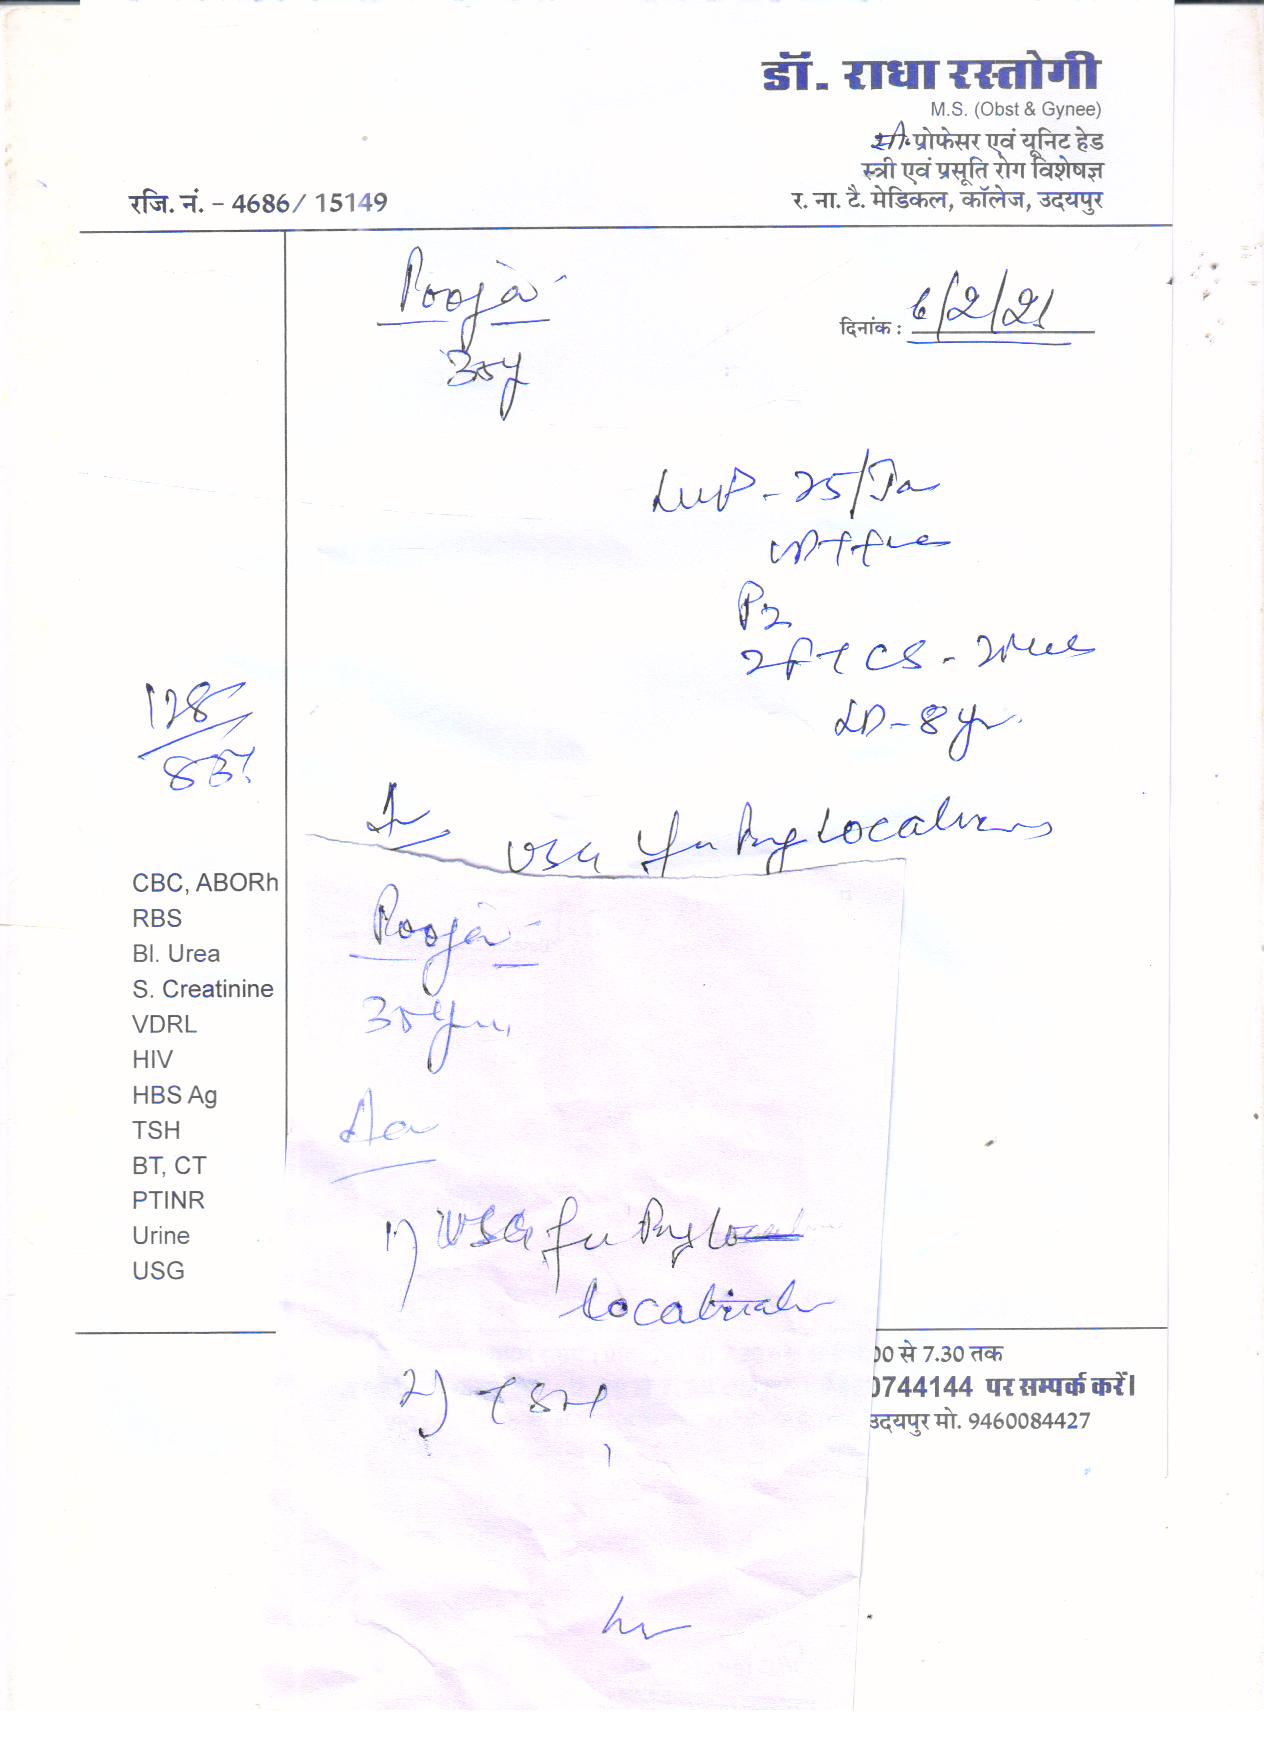 डॉ. राधा रस्तोगी
M.S. (Obst & Gynee)
प्रोफेसर एवं यूनिट हेड
स्त्री एवं प्रसूति रोग विशेषज्ञ
र. ना. टै. मेडिकल, कॉलेज, उदयपुर
रजि. नं. - 4686/ 15149
Pooja
30y
दिनांक : 6/2/21
LMP - 25/Ja
UPT +ve
P2
2 FTCS - 2
LD - 8 yr
128
USG for Preg Locations
CBC, ABORh
RBS
Bl. Urea
S. Creatinine
VDRL
HIV
HBS Ag
TSH
BT, CT
PTINR
Urine
USG
Pooja
30 Yrs
Adv
1) USG for Preg
Location
2) TSH
00 से 7.30 तक
0744144 पर सम्पर्क करें।
उदयपुर मो. 9460084427